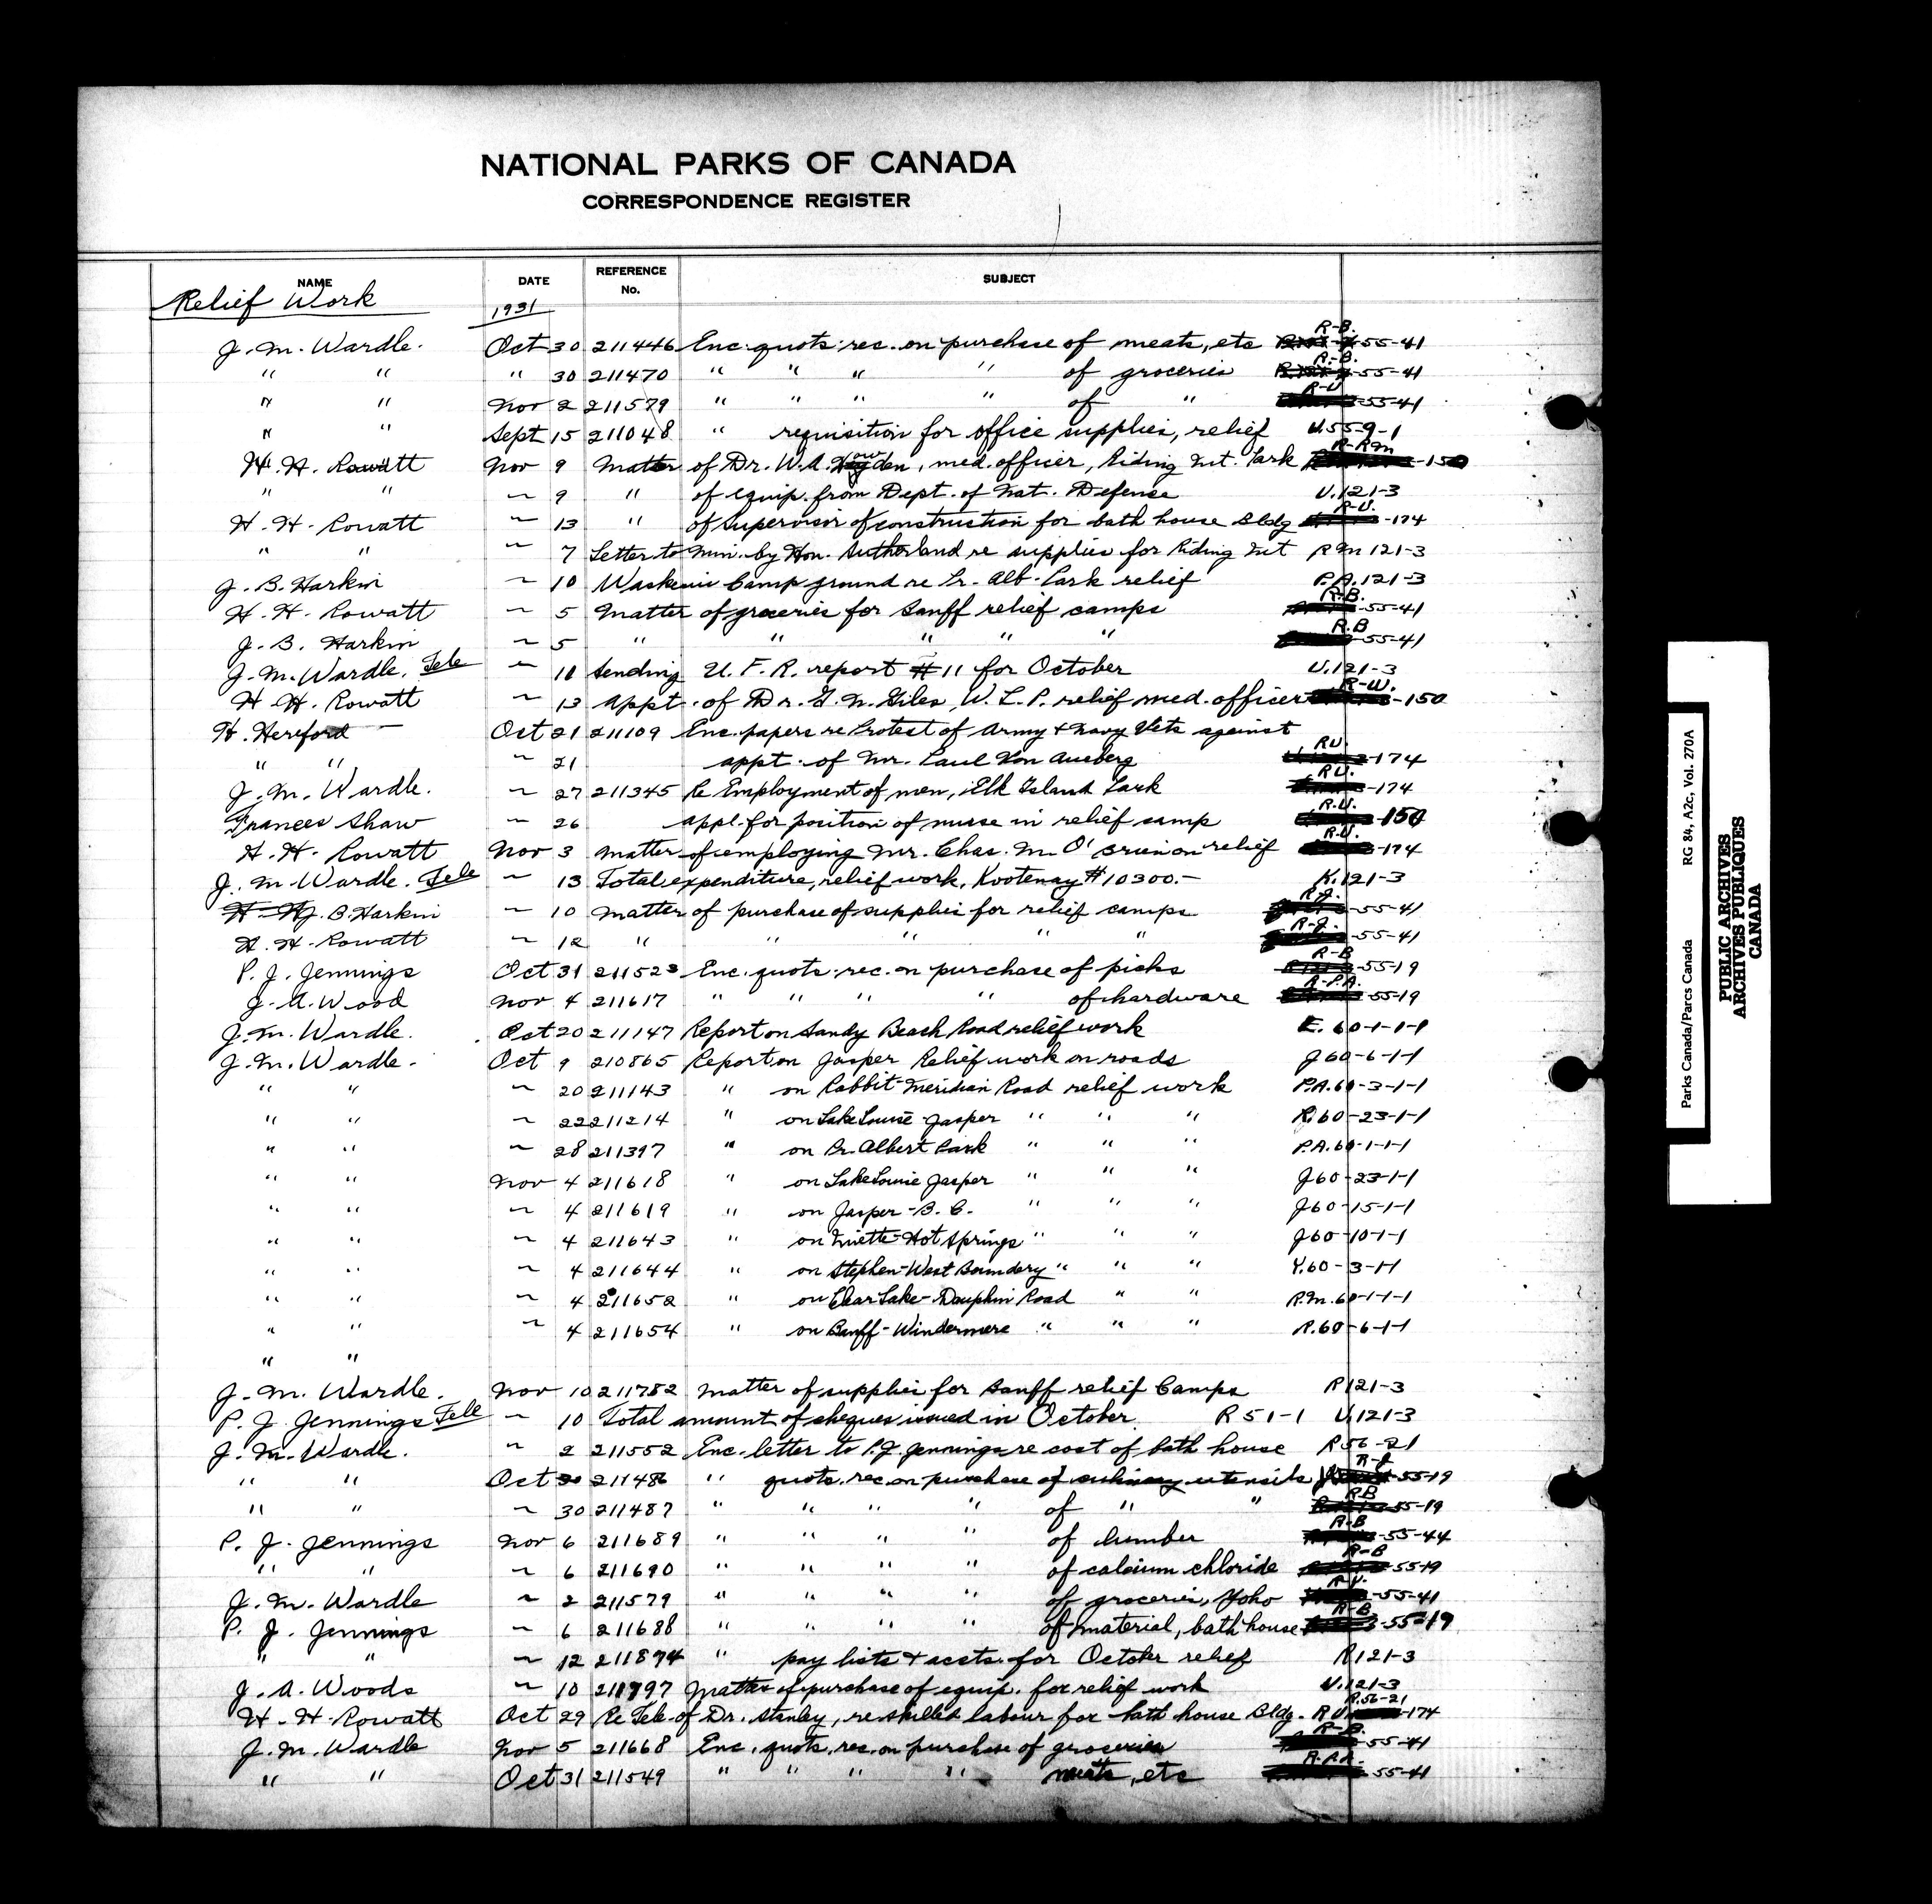 NATIONAL PARKS OF CANADA
CORRESPONDENCE REGISTER
NAME DATE REFERENCE No. SUBJECT
Relief Work 1931
J. M. Wardle. Oct 30 211446 Enc. quots. rec. on purchase of meats, etc R-B. 55-41
" " " 30 211470 " " " " of groceries R-B. 55-41
" " Nov 2 211579 " " " " of " R-U 55-41
" " Sept 15 211048 " requisition for office supplies, relief U.55-9-1
H. H. Rowatt Nov 9 Matter of Dr. W.A. , med. officer, Riding Mt. Park R-RM -150
" " ~ 9 " of equip. from Dept. of Nat. Defense U.121-3
H. H. Rowatt ~ 13 " of supervisor of construction for bath house Bldg R-U. -174
" " ~ 7 Letter to Min. by Hon. Sutherland re supplies for Riding Mt RM 121-3
J. B. Harkin ~ 10 Waskesiu Camp ground re Pr. Alb. Park relief P.A.121-3
H. H. Rowatt ~ 5 Matter of groceries for Banff relief camps R.B. -55-41
J. B. Harkin ~ 5 " " " " " R.B 55-41
J. M. Wardle. Tele ~ 11 Sending U. F. R. report #11 for October U.121-3
H. H. Rowatt ~ 13 Appt. of Dr. G. N. Giles, W. L. P. relief med. officer R-W. -150
H. Hereford Oct 21 211109 Enc. papers re Protest of Army & Navy Vets against
" " ~ 21 appt. of Mr. Paul Von Aueberg RU. -174
J. M. Wardle. ~ 27 211345 Re Employment of men, Elk Island Park RU. -174
Frances Shaw ~ 26 appl. for position of nurse in relief camp R.U. -150
H. H. Rowatt Nov 3 Matter of employing Mr. Chas. M. O'Brien on relief R-U. -174
J. M. Wardle. Tele ~ 13 Total expenditure, relief work, Kootenay #10300.- K.121-3
J. B. Harkin ~ 10 Matter of purchase of supplies for relief camps R-J. -55-41
H. H. Rowatt ~ 12 " " " " " R-J. -55-41
P. J. Jennings Oct 31 211523 Enc. quots. rec. on purchase of picks R-B -55-19
J. A. Wood Nov 4 211617 " " " " of hardware R-P.A. 55-19
J. M. Wardle. Oct 20 211147 Report on Sandy Beach Road relief work E. 60-1-1-1
J. M. Wardle. Oct 9 210865 Report on Jasper Relief work on roads J 60-6-1-1
" " ~ 20 211143 " on Rabbit-Meridian Road relief work P.A.60-3-1-1
" " ~ 22 211214 " on Lake Louise-Jasper " " " R.60-23-1-1
" " ~ 28 211397 " on Pr. Albert Park " " " P.A.60-1-1-1
" " Nov 4 211618 " on Lake Louise Jasper " " " J60-23-1-1
" " ~ 4 211619 " on Jasper-B. C. " " " J60-15-1-1
" " ~ 4 211643 " on Miette-Hot Springs " " " J60-10-1-1
" " ~ 4 211644 " on Stephen-West Boundary " " " Y.60-3-1-1
" " ~ 4 211652 " on Clear Lake-Dauphin Road " " R.M.60-1-1-1
" " ~ 4 211654 " on Banff-Windermere " " " R.60-6-1-1
" "
J. M. Wardle. Nov 10 211782 Matter of supplies for Banff relief Camps R121-3
P. J. Jennings Tele ~ 10 Total amount of cheques issued in October R 51-1 U.121-3
J. M. Wardle. ~ 2 211552 Enc. letter to P.J. Jennings re cost of bath house R56-21
" " Oct 30 211486 " quots. rec. on purchase of culinary utensils R-J 55-19
" " ~ 30 211487 " " " " of " " RB 55-19
P. J. Jennings Nov 6 211689 " " " " of lumber R-B -55-44
" " ~ 6 211690 " " " " of calcium chloride R-B 55-19
J. M. Wardle ~ 2 211579 " " " " of groceries, Yoho R.U. -55-41
P. J. Jennings ~ 6 211688 " " " " of material, bath house R-B -55-19
" " ~ 12 211894 " pay lists & accts. for October relief R121-3
J. A. Woods ~ 10 211797 Matter of purchase of equip. for relief work U.121-3
H. H. Rowatt Oct 29 Re Tele. of Dr. Stanley, re skilled labour for bath house Bldg. R.56-21 R U. -174
J. M. Wardle Nov 5 211668 Enc. quots. rec. on purchase of groceries R-B. -55-41
" " Oct 31 211549 " " " " meats, etc R-P.A. 55-41
Parks Canada/Parcs Canada RG 84, A2c, Vol. 270A
PUBLIC ARCHIVES
ARCHIVES PUBLIQUES
CANADA